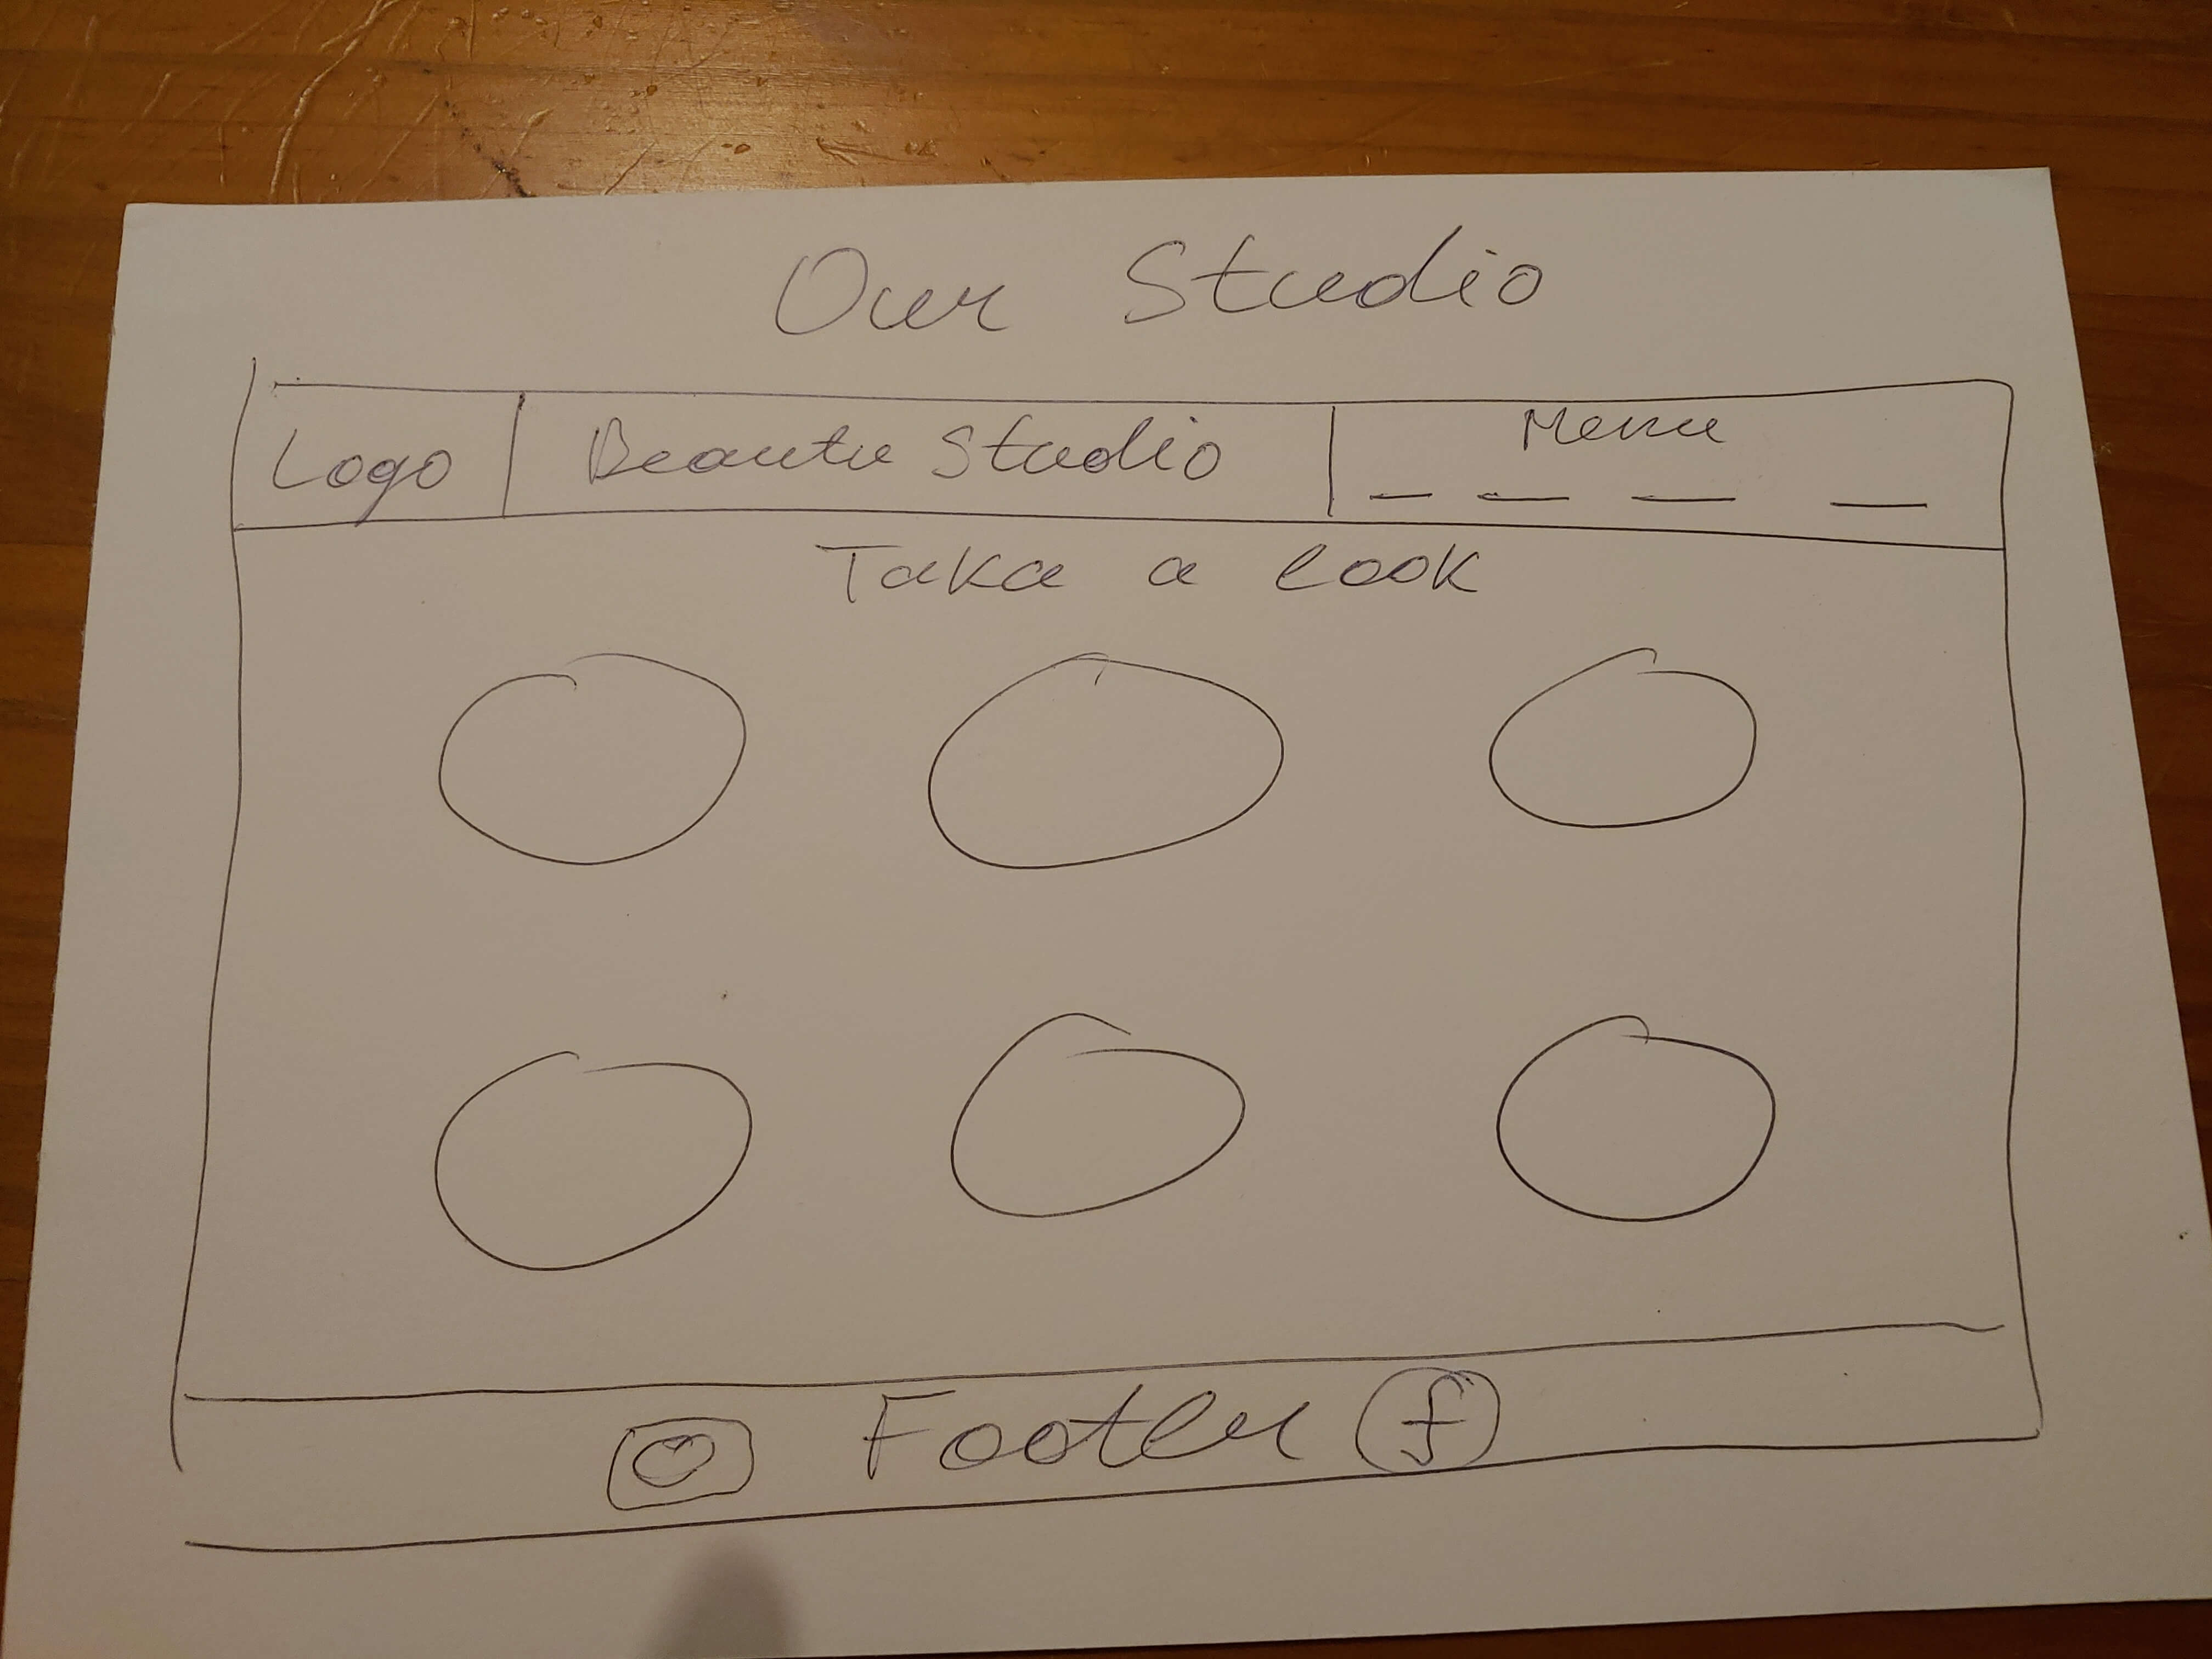 Our Studio
Logo
Beauty Studio
Menu
Take a look
Footer
f